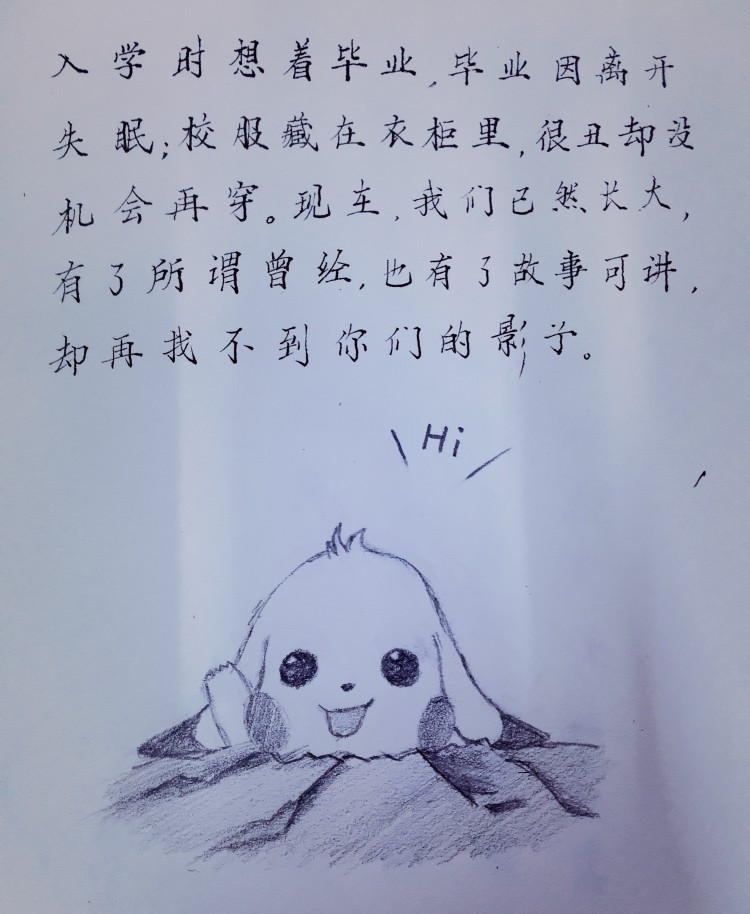 入学时想着毕业,毕业因离开
失眠;校服藏在衣柜里,很丑却没
机会再穿。现在,我们已然长大,
有了所谓曾经,也有了故事可讲,
却再找不到你们的影子。
Hi